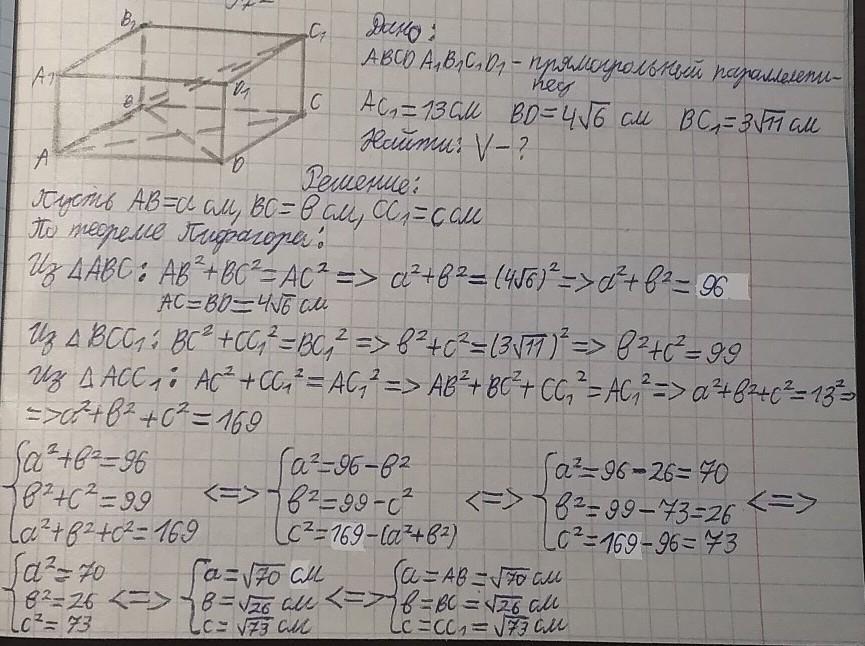 B₁ C₁
A₁ D₁
B C
A D
Дано:
ABCD A₁B₁C₁D₁ - прямоугольный параллелепи-
пед
AC₁=13см BD=4√6 см BC₁=3√11 см
Найти: V-?
Решение:
Пусть AB=a см, BC=b см, CC₁=c см
По теореме Пифагора:
Из △ABC: AB²+BC²=AC² => a²+b²=(4√6)²=>a²+b²=96
AC=BD=4√6 см
Из △BCC₁: BC²+CC₁²=BC₁² => b²+c²=(3√11)² => b²+c²=99
Из △ACC₁: AC²+CC₁²=AC₁² => AB²+BC²+CC₁²=AC₁²=> a²+b²+c²=13²=>
=>a²+b²+c²=169
{a²+b²=96 {a²=96-b² {a²=96-26=70
b²+c²=99 <=> b²=99-c² <=> b²=99-73=26 <=>
a²+b²+c²=169 c²=169-(a²+b²) c²=169-96=73
{a²=70 {a=√70 см {a=AB=√70 см
b²=26 <=> b=√26 см <=> b=BC=√26 см
c²=73 c=√73 см c=CC₁=√73 см